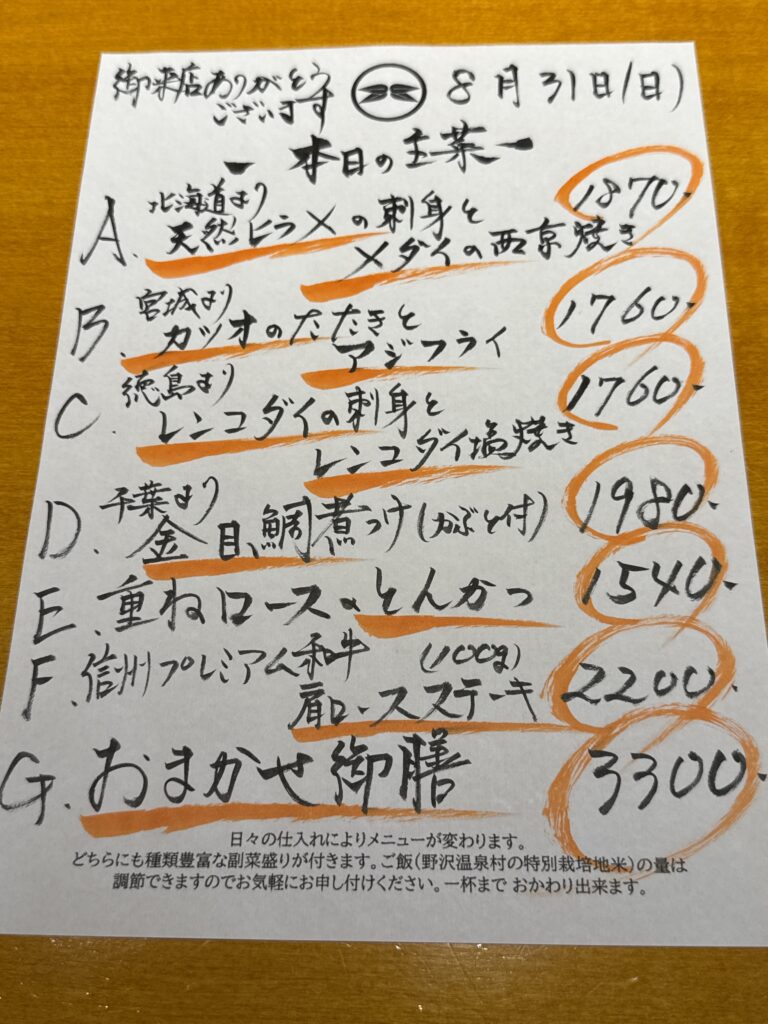 御来店ありがとう
ございます
8月31日(日)
- 本日の主菜 -
A. 北海道より 1870-
天然ヒラメの刺身と
メダイの西京焼き
B. 宮城より 1760-
カツオのたたきと
アジフライ
C. 徳島より 1760-
レンコダイの刺身と
レンコダイ塩焼き
D. 千葉より 1980-
金目鯛煮つけ(かぶと付)
E. 重ねロースのとんかつ 1540-
F. 信州プレミアム和牛 (100g) 2200-
肩ロースステーキ
G. おまかせ御膳 3300-
日々の仕入れによりメニューが変わります。
どちらにも種類豊富な副菜盛りが付きます。ご飯(野沢温泉村の特別栽培地米)の量は
調節できますのでお気軽にお申し付けください。一杯まで おかわり出来ます。